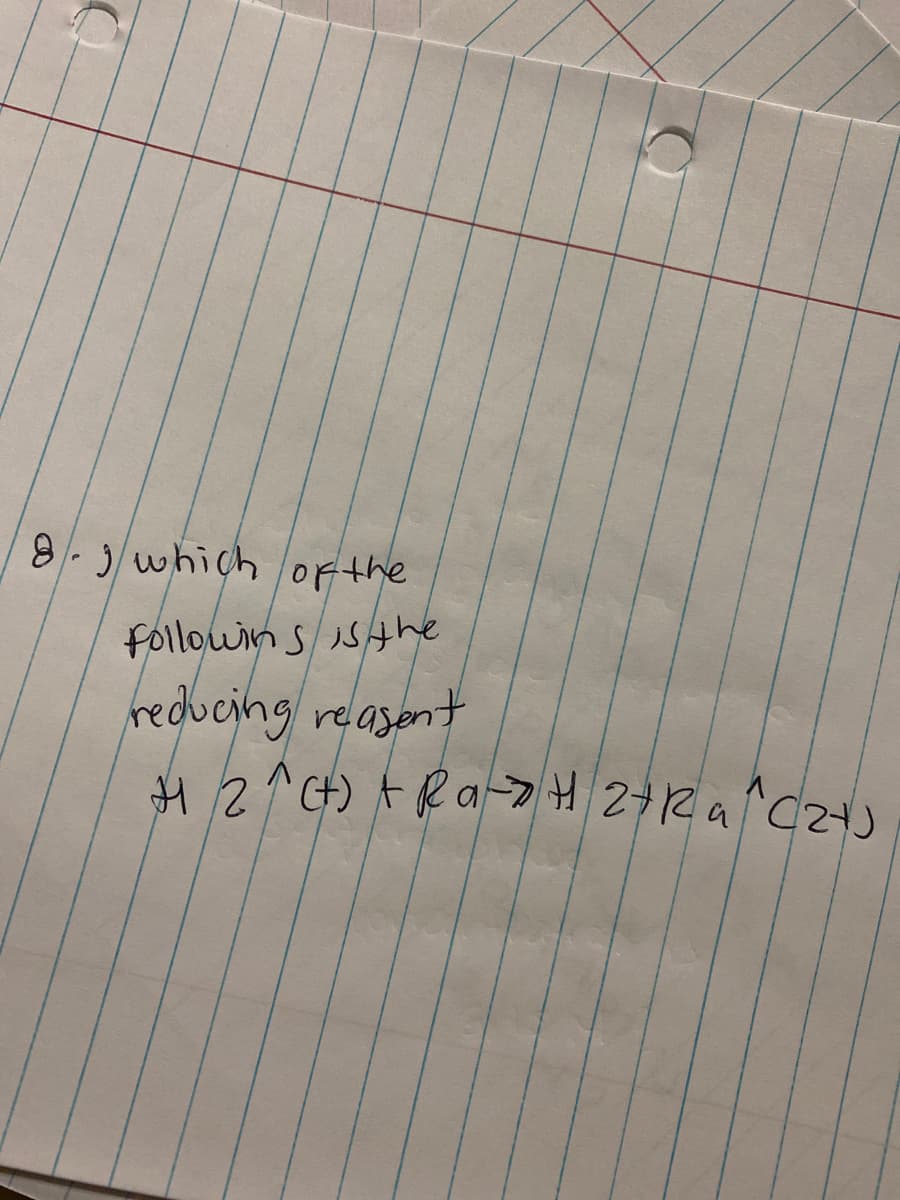 8.) which of the
followins is the
reducing reasent
H 2^(+) + Ra -> H 2+Ra^(2+)